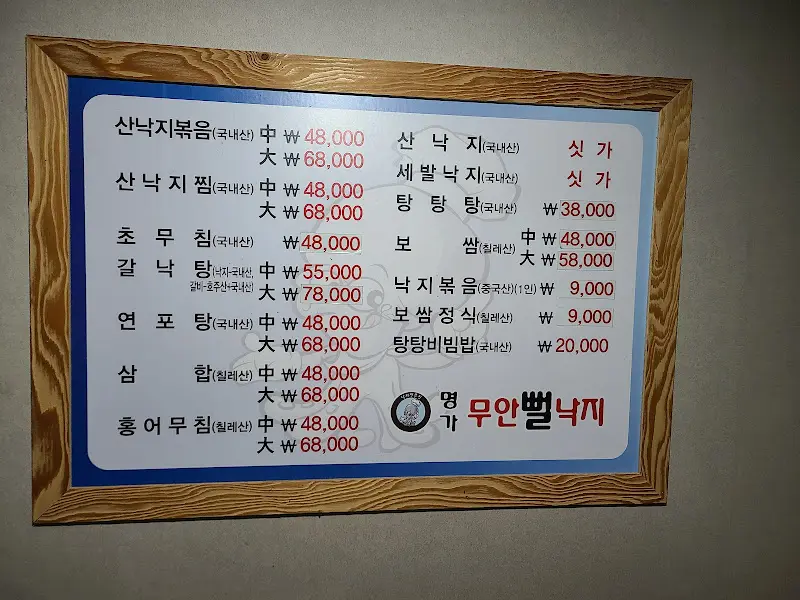 산낙지볶음(국내산) 中 ₩ 48,000
大 ₩ 68,000
산낙지찜(국내산) 中 ₩ 48,000
大 ₩ 68,000
초무침(국내산) ₩48,000
갈낙탕(낙지-국내산, 갈비-호주산+국내산) 中 ₩ 55,000
大 ₩ 78,000
연포탕(국내산) 中 ₩ 48,000
大 ₩ 68,000
삼합(칠레산) 中 ₩ 48,000
大 ₩ 68,000
홍어무침(칠레산) 中 ₩ 48,000
大 ₩ 68,000
산낙지(국내산) 싯가
세발낙지(국내산) 싯가
탕탕탕(국내산) ₩38,000
보쌈(칠레산) 中 ₩48,000
大 ₩58,000
낙지볶음(중국산)(1인) ₩ 9,000
보쌈정식(칠레산) ₩ 9,000
탕탕비빔밥(국내산) ₩20,000
명가 무안뻘낙지